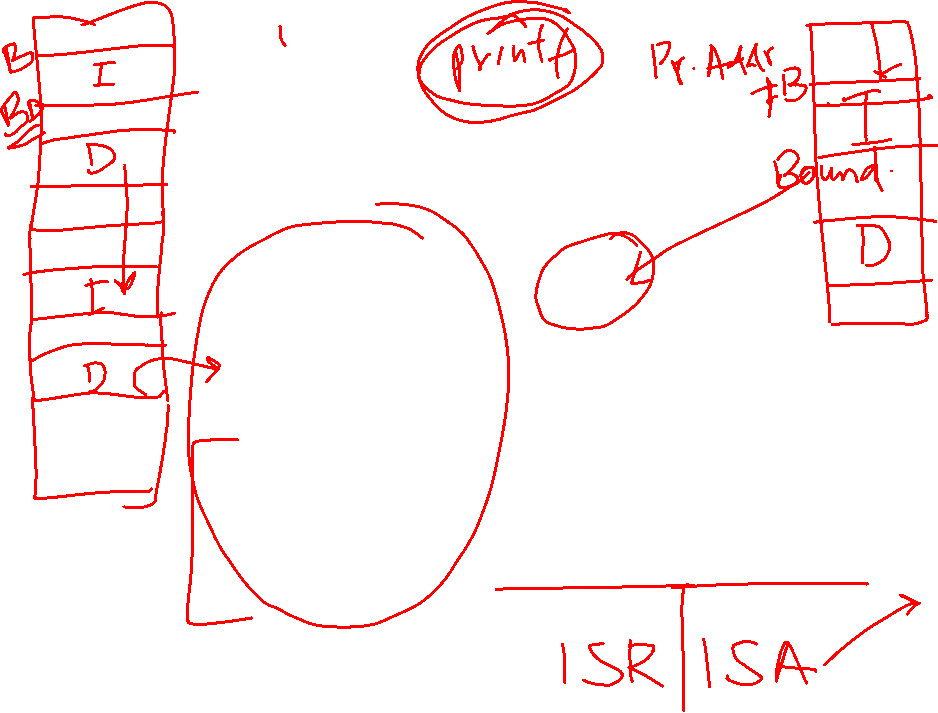 B
I
BD
D
I
D
printf
Pr. Addr
+B
I
Bound.
D
ISR
ISA